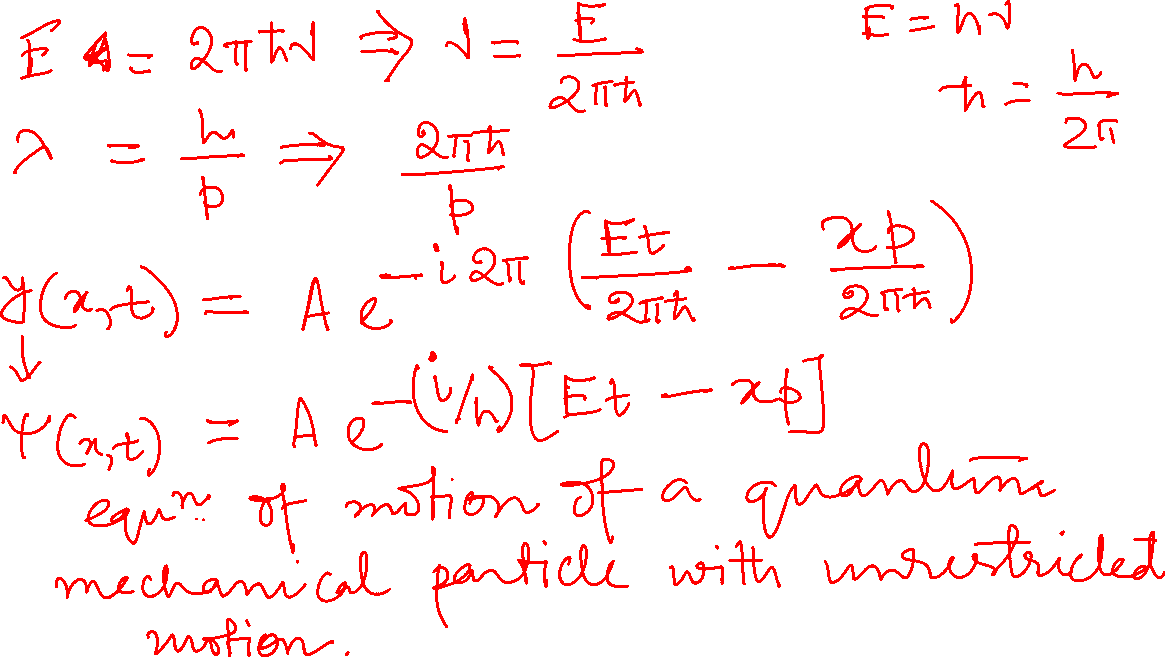 E = 2πħν ⇒ ν = E/2πħ    E = hν
λ = h/p ⇒ 2πħ/p    ħ = h/2π
y(x,t) = A e^{-i2π (Et/2πħ - xp/2πħ)}
↓
Ψ(x,t) = A e^{-(i/ħ)[Et - xp]}
equⁿ. of motion of a quantum
mechanical particle with unrestricted
motion.